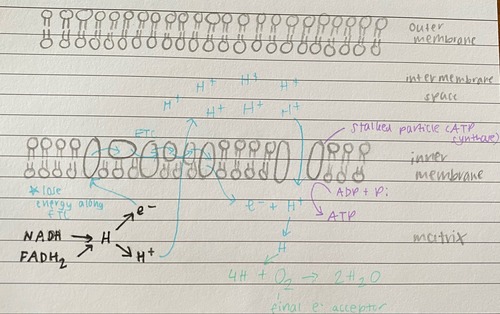 outer
membrane
intermembrane
space
H⁺ H⁺ H⁺
H⁺ H⁺ H⁺ H⁺
stalked particle (ATP
synthase)
ETC
inner
membrane
* lose
energy along
ETC
ADP + Pi
ATP
e⁻ + H⁺
e⁻
NADH
H
FADH₂
H⁺
matrix
H
4H + O₂ → 2H₂O
final e⁻ acceptor